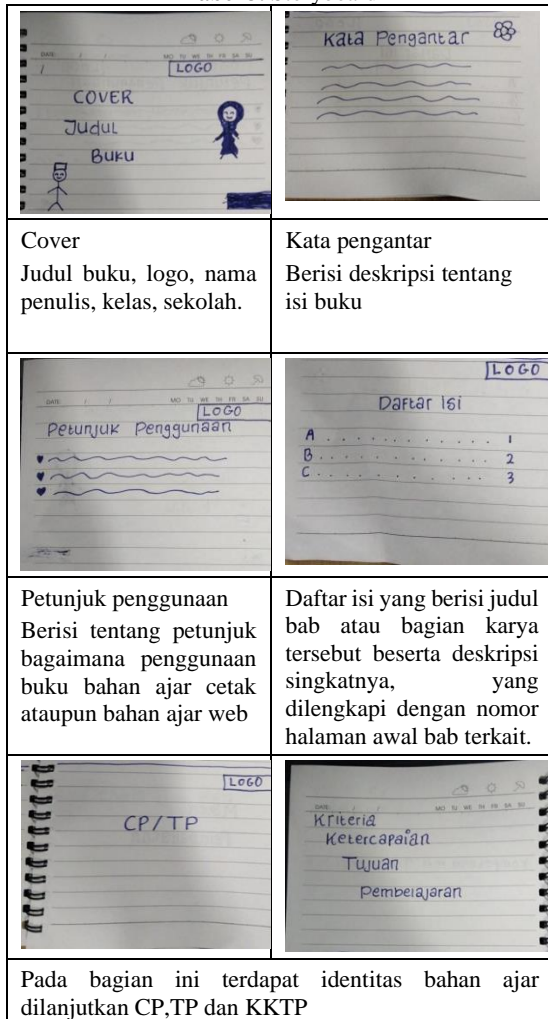 DATE / / MO TU WE TH FR SA SU
/
LOGO
COVER
Judul
Buku
Kata Pengantar
Cover
Judul buku, logo, nama
penulis, kelas, sekolah.
Kata pengantar
Berisi deskripsi tentang
isi buku
DATE / / MO TU WE TH FR SA SU
LOGO
Petunjuk Penggunaan
LOGO
Daftar Isi
A . . . . . . . . . . . . 1
B . . . . . . . . . . . . 2
C . . . . . . . . . . . . 3
Petunjuk penggunaan
Berisi tentang petunjuk
bagaimana penggunaan
buku bahan ajar cetak
ataupun bahan ajar web
Daftar isi yang berisi judul
bab atau bagian karya
tersebut beserta deskripsi
singkatnya, yang
dilengkapi dengan nomor
halaman awal bab terkait.
LOGO
CP/TP
DATE / / MO TU WE TH FR SA SU
Kriteria
Ketercapaian
Tujuan
Pembelajaran
Pada bagian ini terdapat identitas bahan ajar
dilanjutkan CP,TP dan KKTP